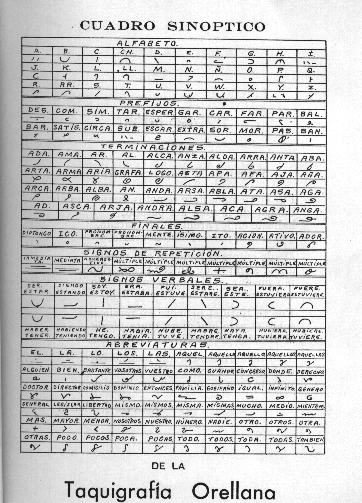 CUADRO SINOPTICO
ALFABETO.
A. B. C. CH. D. E. F. G. H. I.
J. K. L. LL. M. N. Ñ. O. P. Q.
R. RR. S. T. U. V. W. X. Y. Z.
PREFIJOS.
DES. COM. SIM. TAR. ESPER. GAR. CAR. FAR. PAR. BAL.
BAR. SATIS. CIRCA. SUB. ESCAR. EXTRA. SOR. MOR. PAS. BAN.
TERMINACIONES.
ADA. AMA. AR. AL. ALCA. ANZA. ALDA. ARRA. ANTA. ABA.
ARTA. ARMA. ARIA. GRAFA. LOGA. AETA. APA. AFA. AJA. AÑA.
ARCA. ARBA. ALBA. AN. ANDA. ARSA. ABLA. ATA. ASA. AGA.
AD. ASCA. ARJA. AHORA. ALSA. ACA. AGRA. ANGA.
FINALES.
DIPTONGO ICO. MENTE. ISIMO. ITO. ACION. ATIVO. ADOR.
SIGNOS DE REPETICIÓN.
MEDIATA MULTIPLE MULTIPLE MULTIPLE MULTIPLE MULTIPLE MULTIPLE
SIGNOS VERBALES.
SER. SIENDO SOY. ERA. FUI. SERE. SEA. FUERA. FUERE.
ESTAR. ESTANDO ESTOY. ESTABA. ESTUVE ESTARE. ESTE. ESTUVIERA ESTUVIERE
HABER. HABIENDO HE. HABIA. HUBE. HABRE. HAYA. HUBIERA. HUBIERE.
TENER. TENIENDO. TENGO. TENIA. TUVE. TENDRE. TENGA. TUVIERA. TUVIERE.
ABREVIATURAS.
EL. LA. LO. LOS. LAS. AQUEL. AQUELLA
ALGUIEN BIEN. BASTANTE VOSOTROS VUESTRO COMO. CUANDO CONGRESO DONDE. DERECHO
DOCTOR DIRECTOR DOMICILIO DOMINIO ENTONCES FAMILIA. IGUAL. INFINITO. GENERO
GENERAL LIBERTAD MISMO. MISMOS. MISMA. MISMAS. MUCHO. MEDIO. MIENTRAS
MAS. MAYOR. MENOR. NOSOTROS NUESTRO. NUMERO. NADIE. OTRO. OTROS. OTRA.
OTRAS. POCO. POCOS. POCA. POCAS. TODO. TODOS. TODA. TODAS. TAMBIEN
DE LA
Taquigrafía Orellana